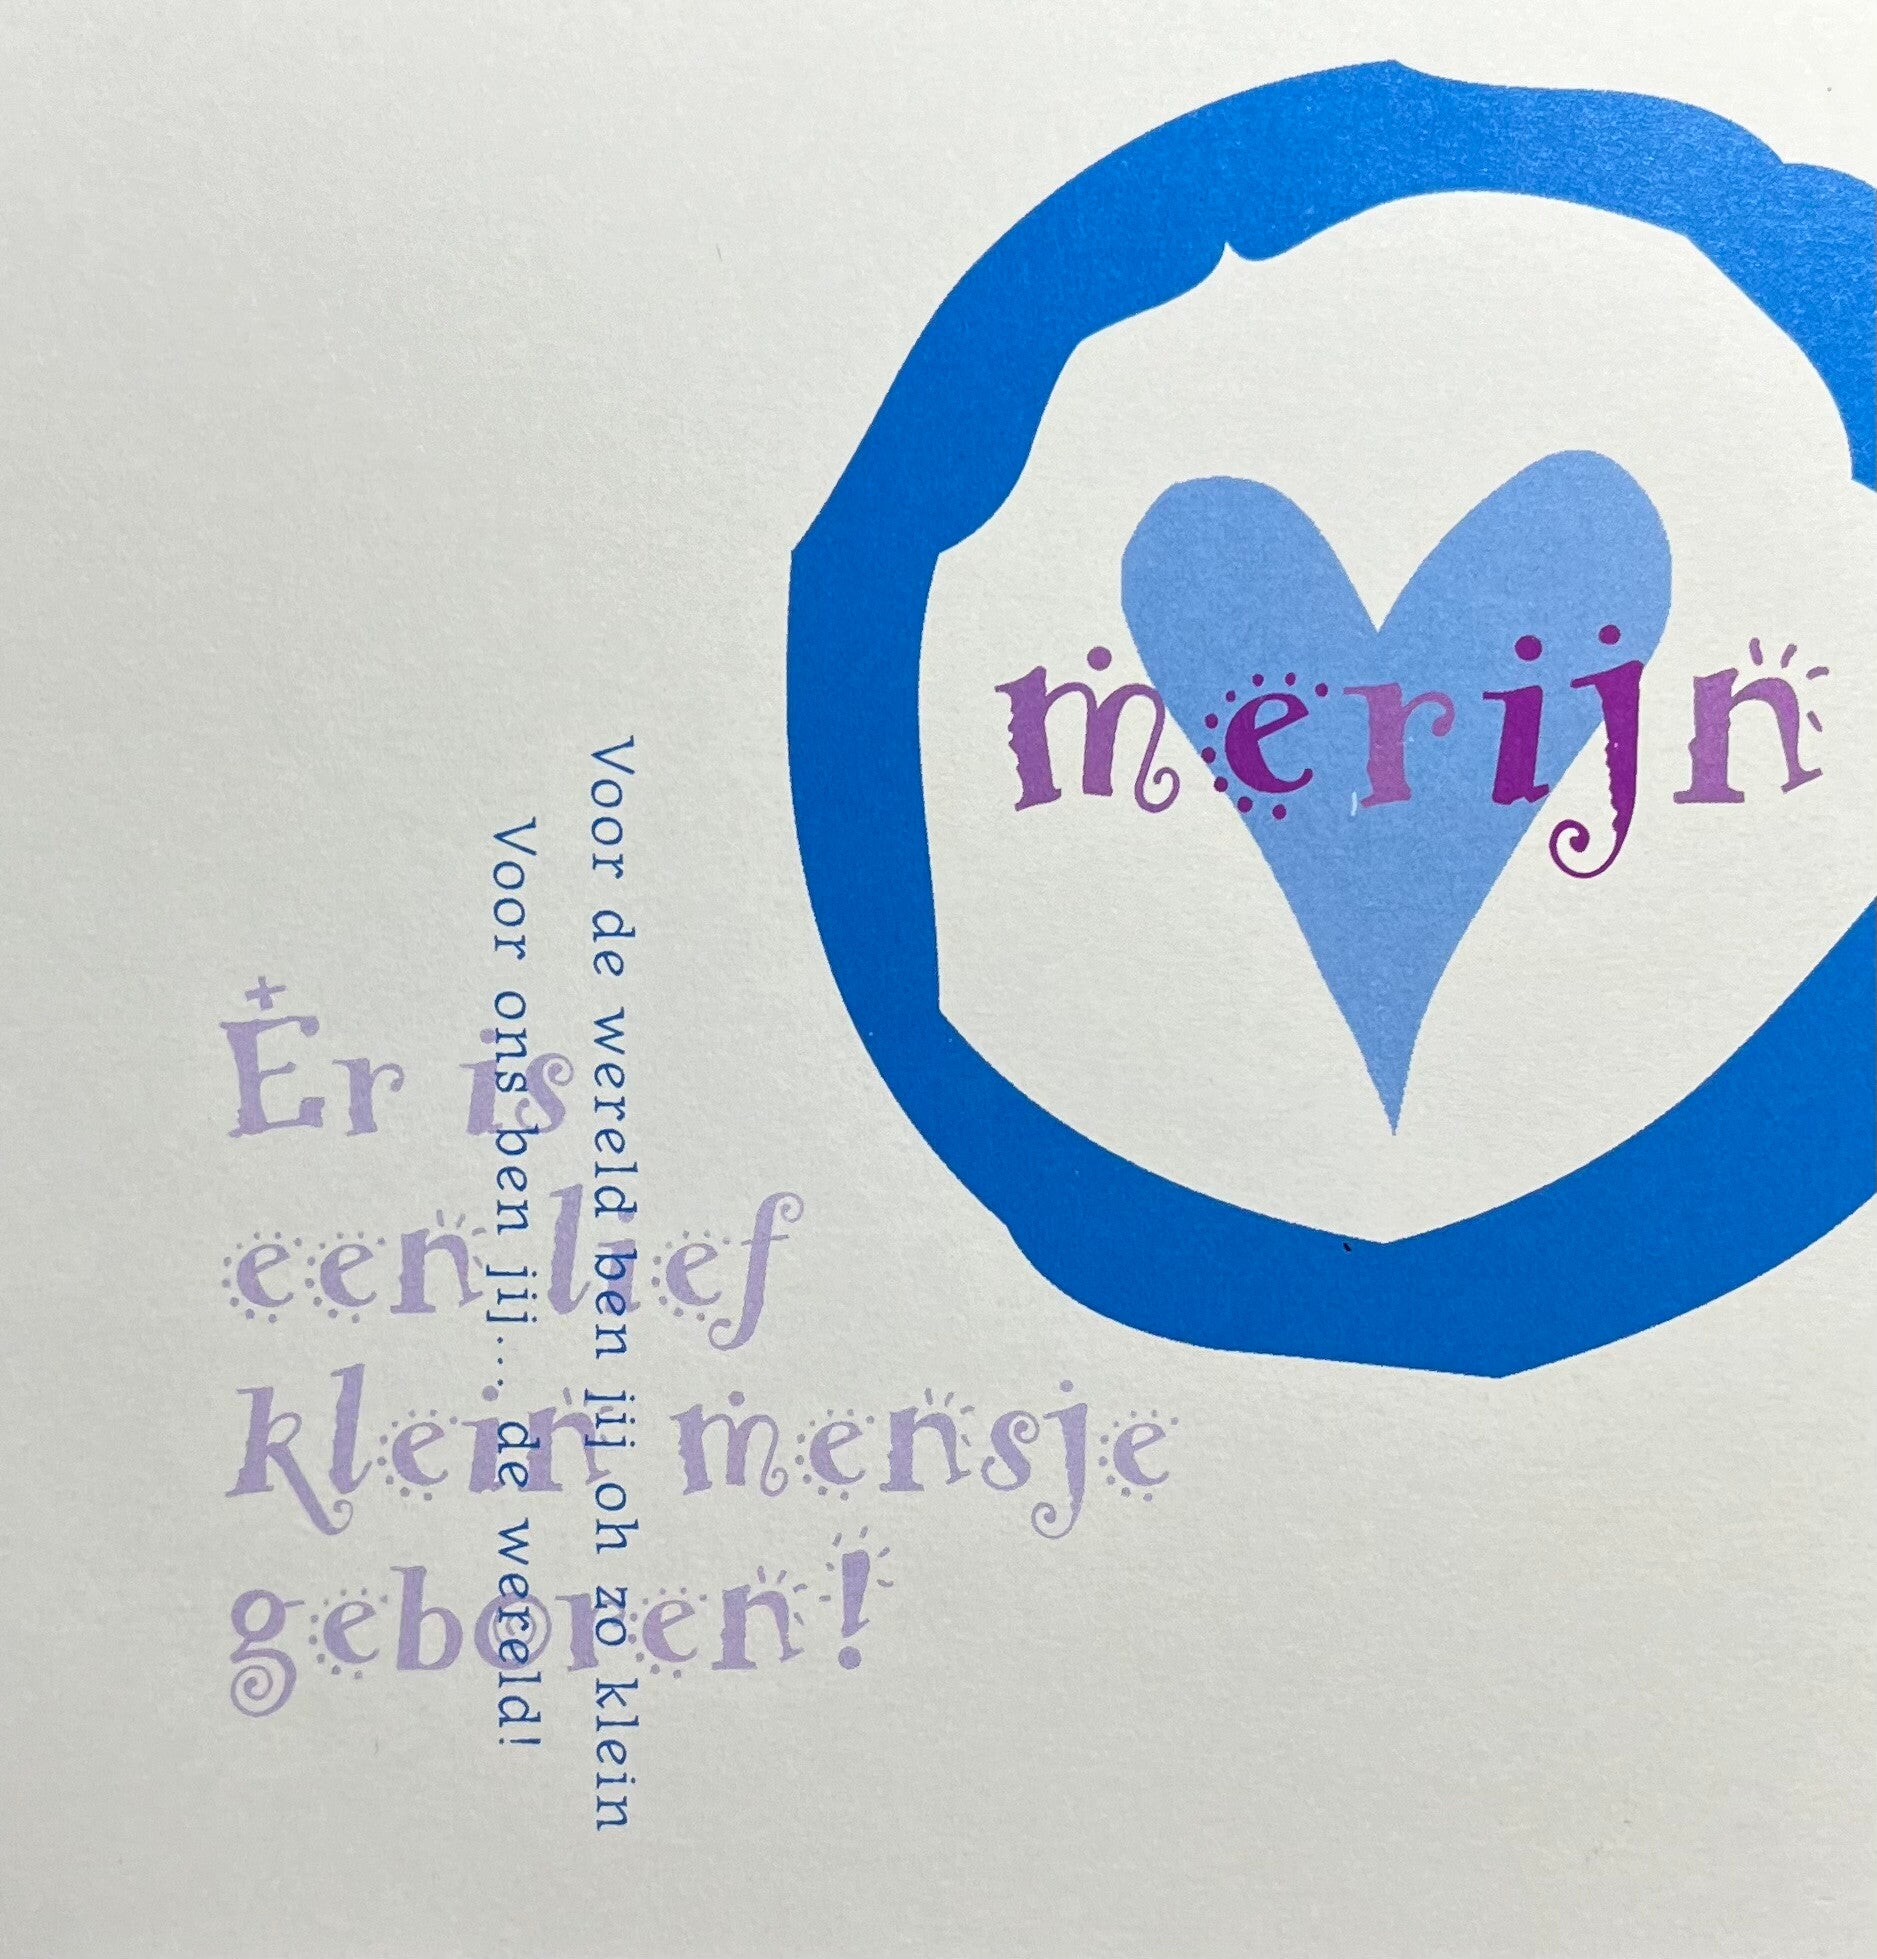 merijn
Voor de wereld ben jij oh zo klein
Voor ons ben jij... de wereld!
Er is
een lief
klein mensje
geboren!